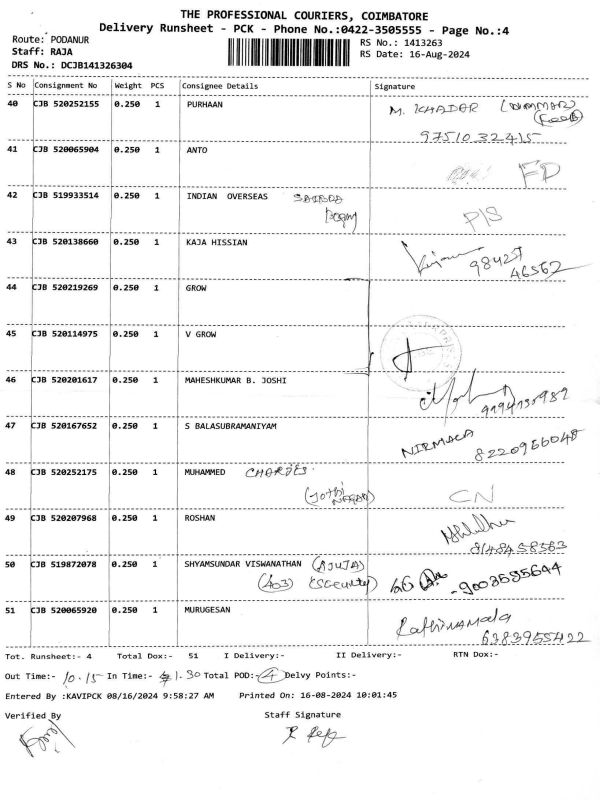 THE PROFESSIONAL COURIERS, COIMBATORE
Delivery Runsheet - PCK - Phone No.:0422-3505555 - Page No.:4
Route: PODANUR
RS No.: 1413263
Staff: RAJA
RS Date: 16-Aug-2024
DRS No.: DCJB141326304
S No Consignment No Weight PCS Consignee Details Signature
40 CJB 520252155 0.250 1 PURHAAN M. KHADAR
9751032415
41 CJB 520065904 0.250 1 ANTO FD
42 CJB 519933514 0.250 1 INDIAN OVERSEAS P/S
43 CJB 520138660 0.250 1 KAJA HISSIAN 98425
46562
44 CJB 520219269 0.250 1 GROW
45 CJB 520114975 0.250 1 V GROW
46 CJB 520201617 0.250 1 MAHESHKUMAR B. JOSHI
47 CJB 520167652 0.250 1 S BALASUBRAMANIYAM NIRMALA
8220966048
48 CJB 520252175 0.250 1 MUHAMMED CN
(Jothi NAGAR)
49 CJB 520207968 0.250 1 ROSHAN
8148458563
50 CJB 519872078 0.250 1 SHYAMSUNDAR VISWANATHAN
(403) (Security) -9003555644
51 CJB 520065920 0.250 1 MURUGESAN Rathinamala
6383955422
Tot. Runsheet:- 4 Total Dox:- 51 I Delivery:- II Delivery:- RTN Dox:-
Out Time:- 10.15 In Time:- 1.30 Total POD:- 4 Delvy Points:-
Entered By :KAVIPCK 08/16/2024 9:58:27 AM Printed On: 16-08-2024 10:01:45
Verified By Staff Signature